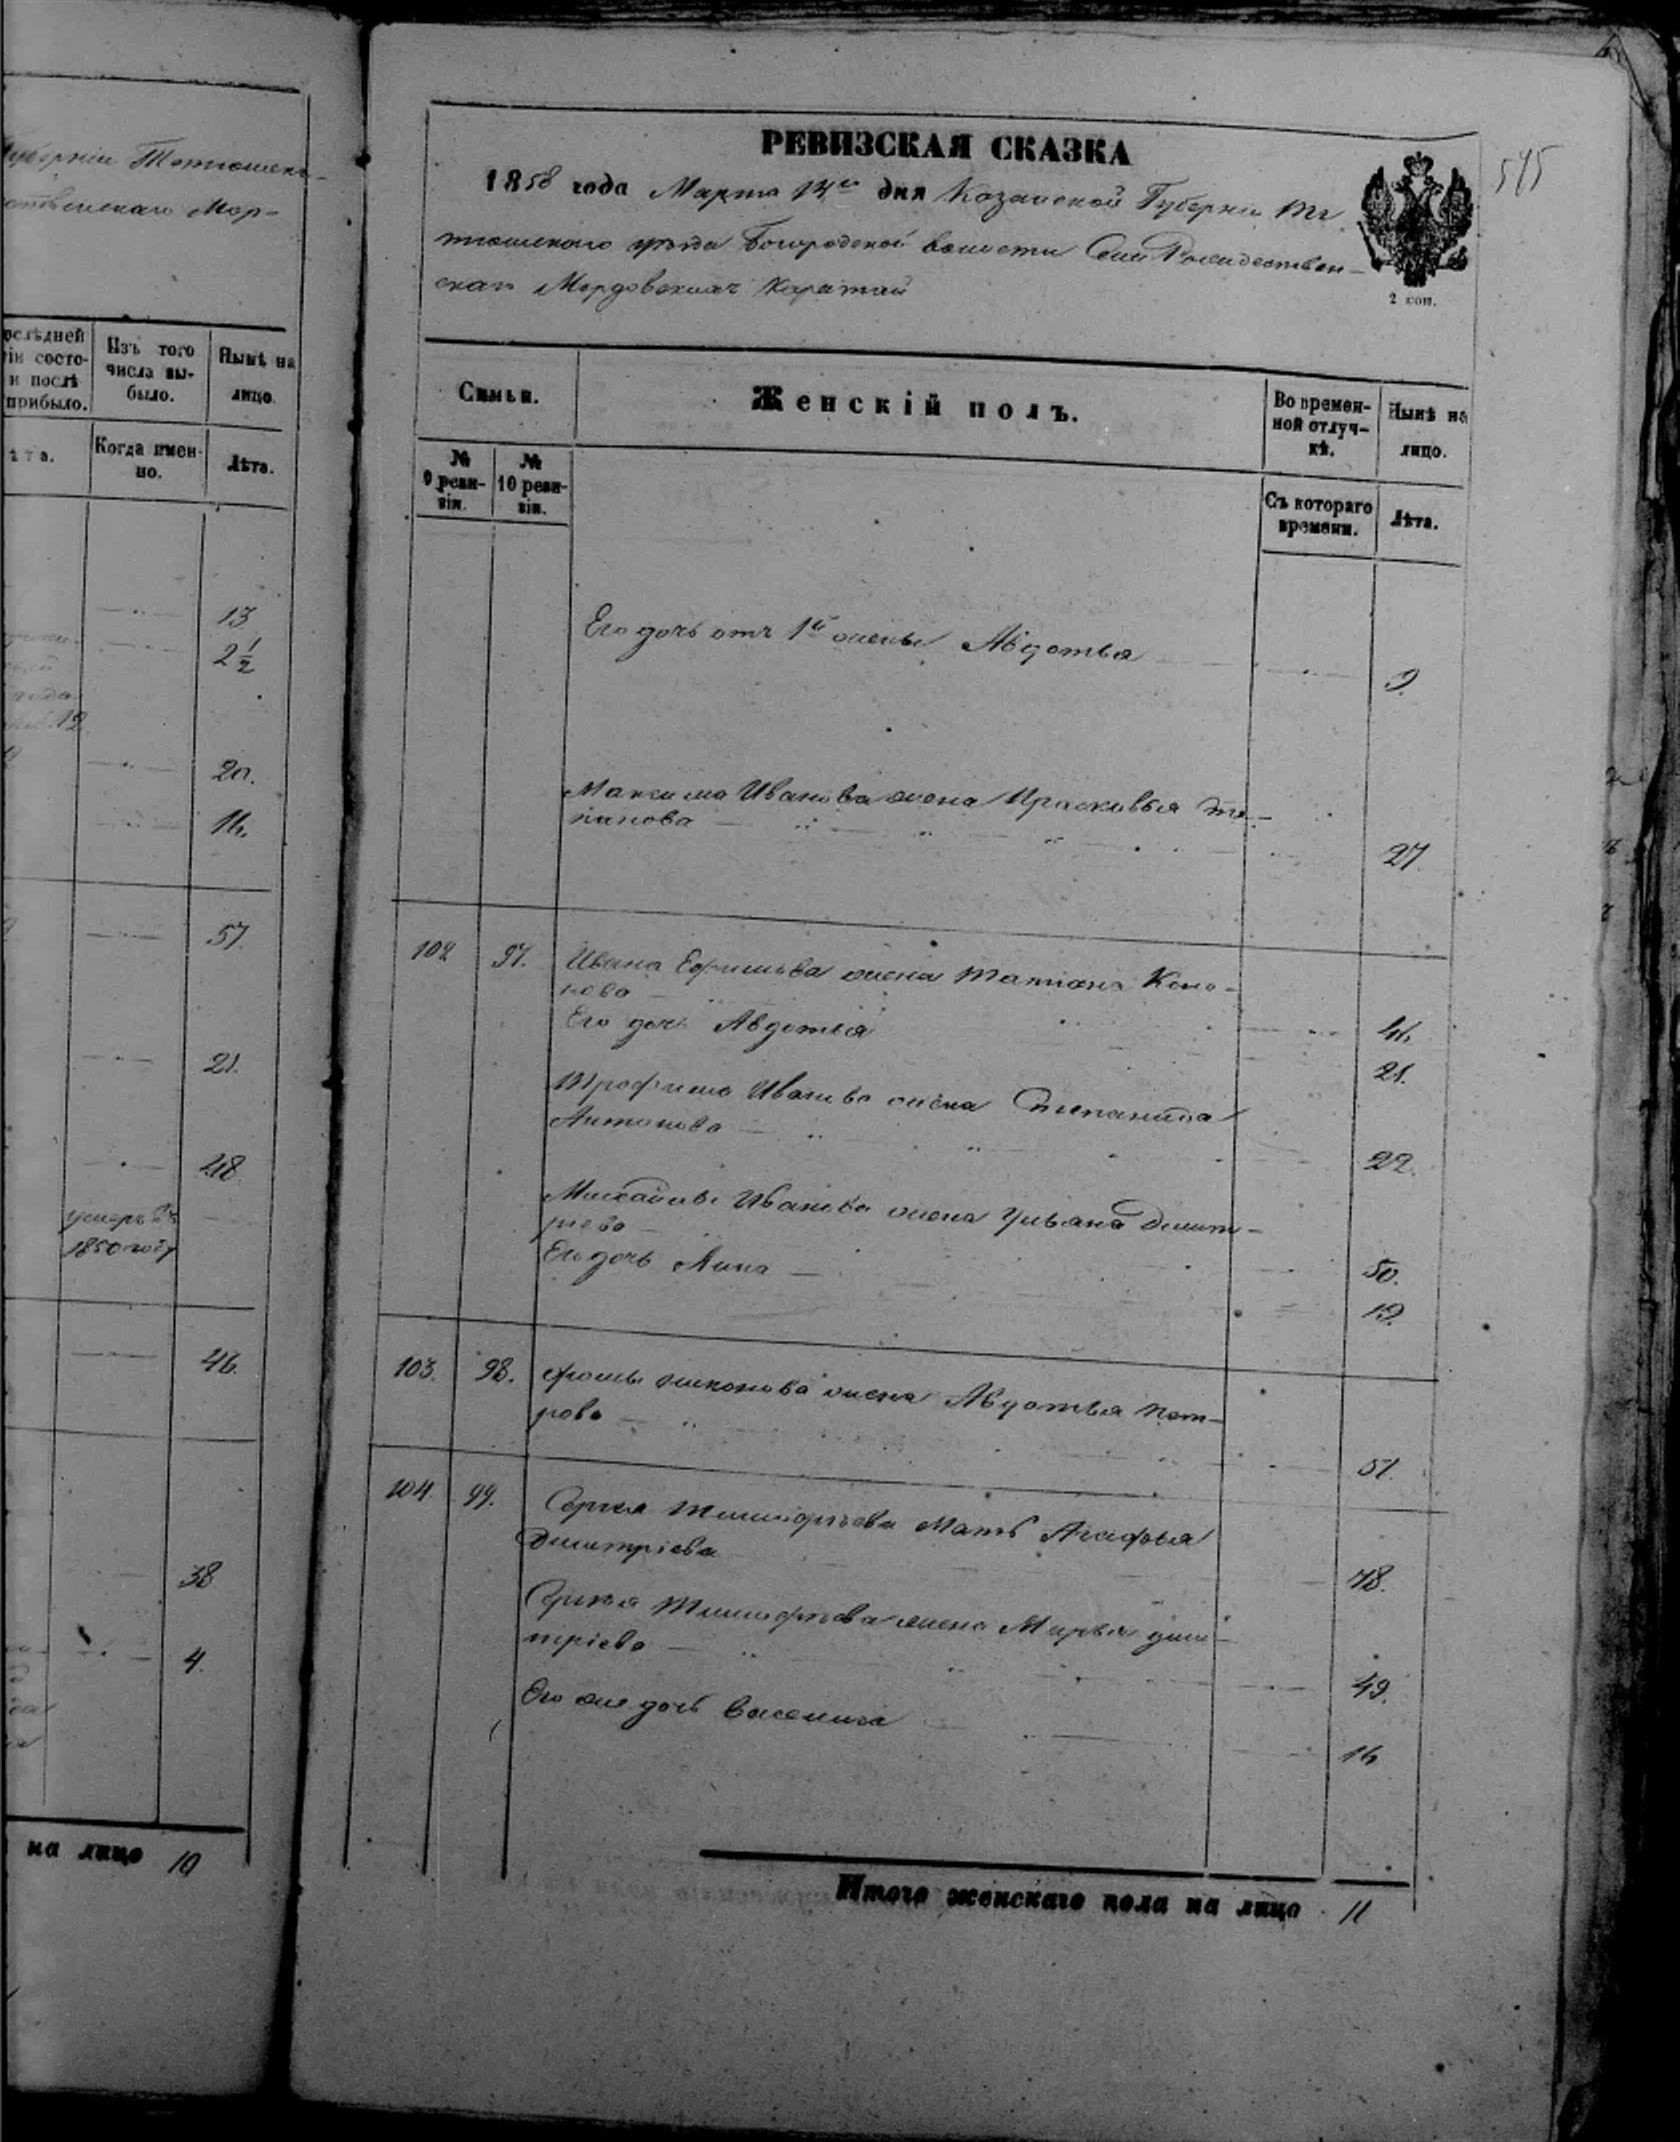 Губерніи Тетюшска-
ственскаго Мор-
ослѣдней
іи состо-
и послѣ
прибыло.
Изъ того
числа вы-
было.
Нынѣ на
лицо.
ѣта.
Когда имен-
но.
Лѣта.
13
2½
20.
16.
57.
21.
48
умеръ въ
1850 году
46.
38
4.
на лицо 10
РЕВИЗСКАЯ СКАЗКА
1858 года Марта дня Казанской Губерніи Те
тюшскаго уѣзда Богородской волости Села Рождествен-
скаго Мордовскихъ Каратай
2 коп.
515
Семьи.
Женскій полъ.
Во времен-
ной отлуч-
кѣ.
Нынѣ на
лицо.
№
9 реви-
зіи.
№
10 реви-
зіи.
Съ котораго
времени.
Лѣта.
Его дочь отъ 1й жены Авдотья
9.
Максима Иванова жена Прасковья Сте-
панова
27.
102 97. Ивана Ефимова жена Татіана Коно-
нова
46.
Его дочь Авдотья
21.
Трофима Иванова жена Степанида
Антонова
22.
Михайлы Иванова жена Ульяна Димит-
ріева
50.
Его дочь Анна
19.
103. 98. Фомы Никонова жена Авдотья Пет-
рова
51.
104. 99. Сергея Тимофѣева Мать Агафья
Димитріева
78.
Сергея Тимофѣева жена Марья Дми-
тріева
49.
Его же дочь Васениса
16
Итого женскаго пола на лицо 11